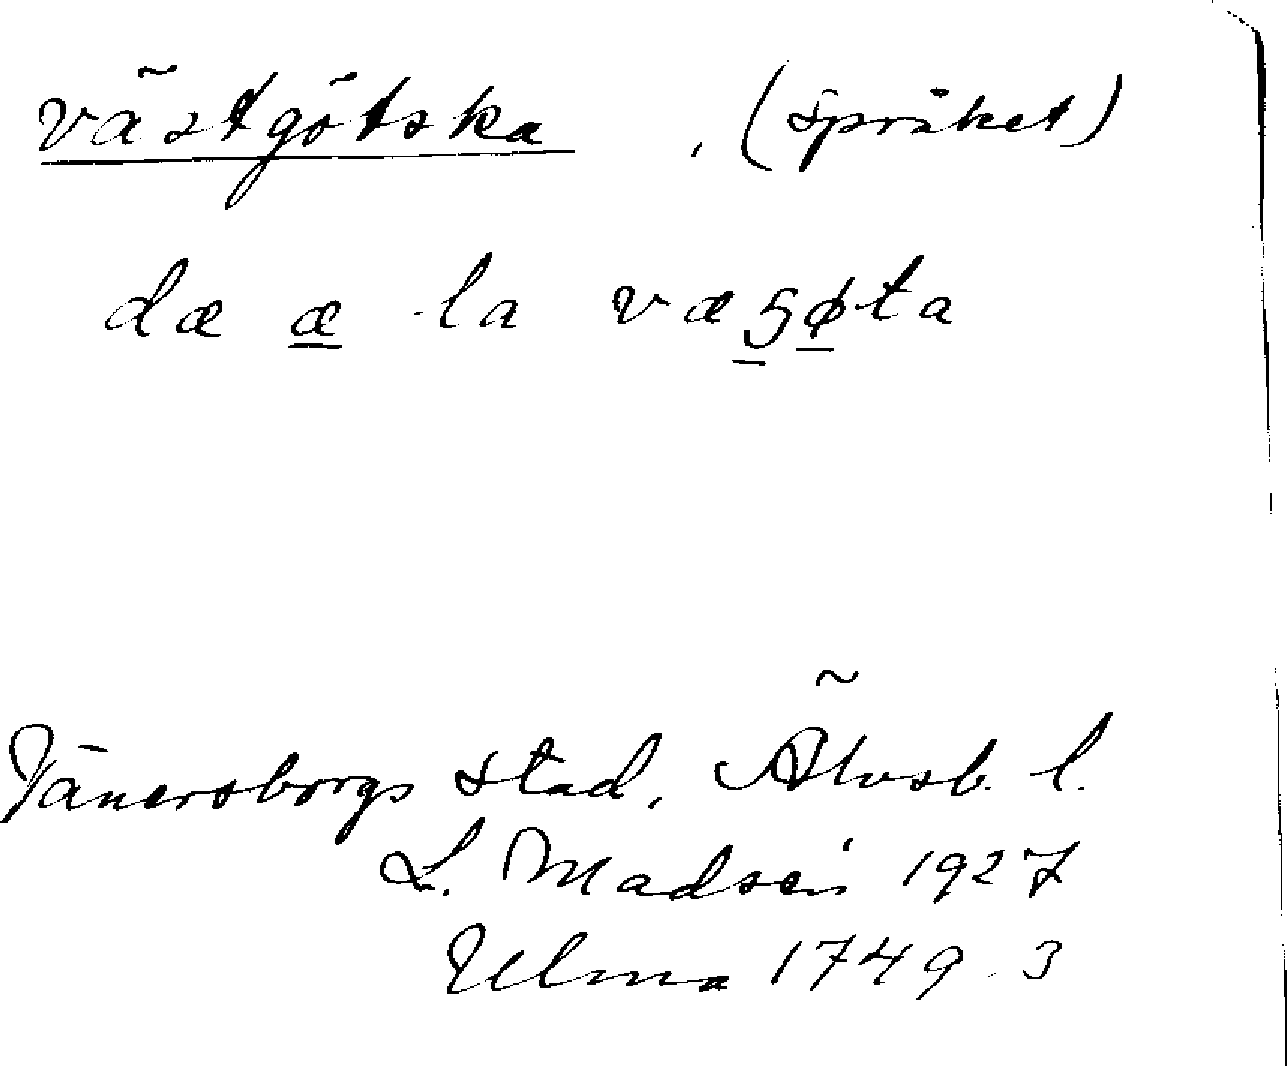 västgötska , (språket)
dæ æ la væʒøta
Vänersborgs stad, Älvsb. l.
L. Madsén 1927
Ulma 1749.3